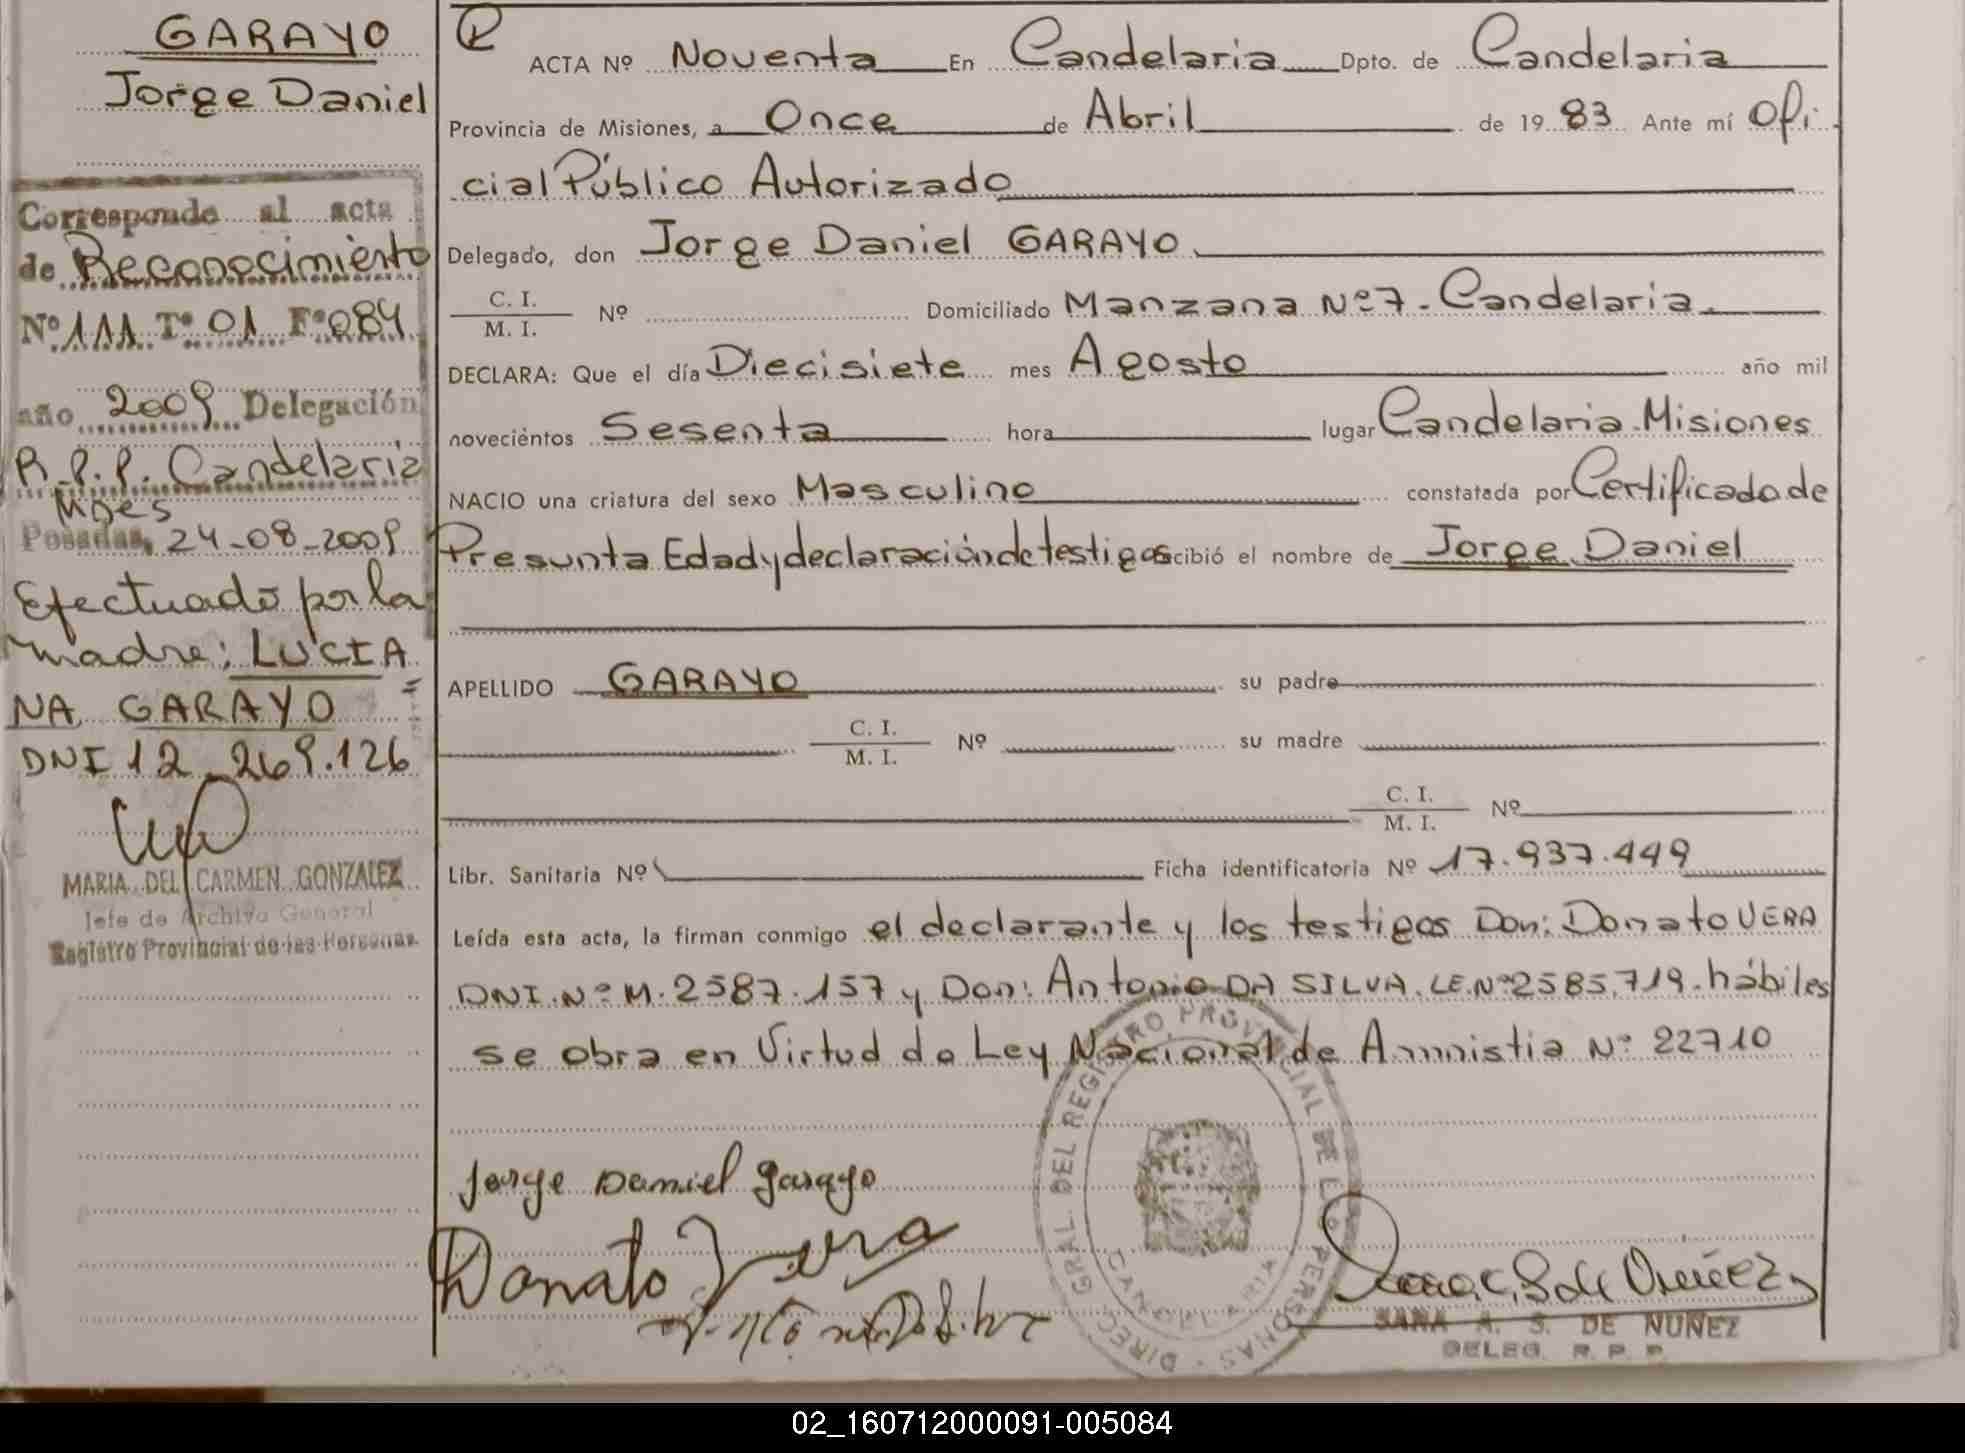 GARAYO
Jorge Daniel
Corresponde al acta
de Reconocimiento
Nº 111 Tº 01 Fº 084
año 2009 Delegación
R.P.P. Candelaria
Mnes
Posadas, 24-08-2009
Efectuado por la
madre: LUCIA
NA GARAYO =
DNI 12.269.126
MARIA DEL CARMEN GONZALEZ
Jefe de Archivo General
Registro Provincial de las Personas
ACTA Nº Noventa En Candelaria Dpto. de Candelaria
Provincia de Misiones, a Once de Abril de 1983 Ante mí Ofi
cial Público Autorizado
Delegado, don Jorge Daniel GARAYO
C. I.
M. I. Nº Domiciliado Manzana Nº 7 - Candelaria.
DECLARA: Que el día Diecisiete mes Agosto año mil
noveciéntos Sesenta hora lugar Candelaria. Misiones
NACIO una criatura del sexo Masculino constatada por Certificado de
Presunta Edad y declaración de testigos cibió el nombre de Jorge Daniel
APELLIDO GARAYO su padre
C. I.
M. I. Nº su madre
C. I.
M. I. Nº
Libr. Sanitaria Nº Ficha identificatoria Nº 17.937.449
Leída esta acta, la firman conmigo el declarante y los testigos Don: Donato VERA
DNI. Nº M. 2587.157 y Don: Antonio DA SILVA. LE. Nº 2585.719. hábiles
se obra en Virtud de Ley Nacional de Amnistia Nº 22710
Jorge Daniel Garayo
Donato Vera
DIREC. GRAL. DEL REGISTRO PROVINCIAL DE LAS PERSONAS
CANDELARIA
SARA A. S. DE NUÑEZ
DELEG. R. P. P.
02_160712000091-005084